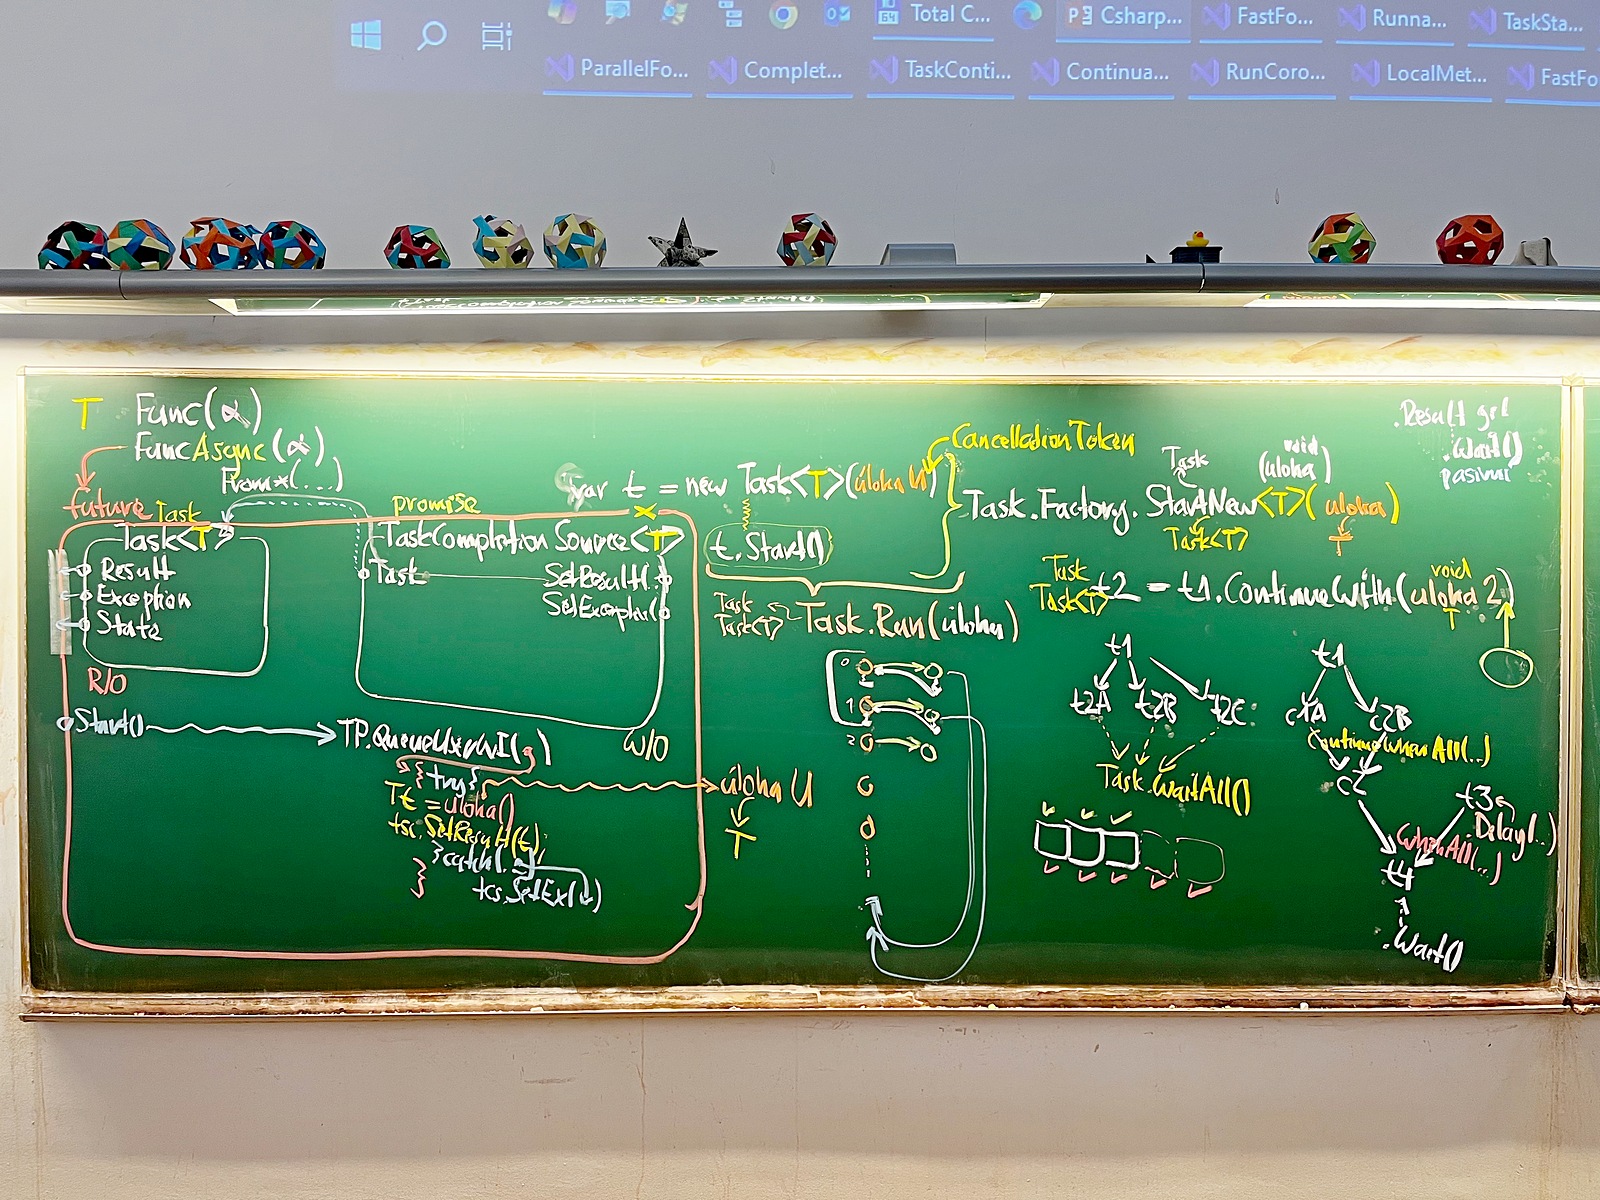 Total C...
Csharp...
FastFo...
Runna...
TaskSta...
ParallelFo...
Complet...
TaskConti...
Continua...
RunCoro...
LocalMet...
FastFo
T Func(α)
FuncAsync(α)
From*(...)
future
Task
Task<T>
Result
Exception
State
R/O
Start()
promise
TaskCompletion Source<T>
Task
SetResult(.
W/O
{ try {
T t = úloha()
tsc.SetResult(t);
} catch(
}
tcs.SetEx( )
úloha U
T
var t = new Task<T>(úloha U)
CancellationToken
t.Start()
Task
Task<T>
Task.Run(úloha)
0
1
2
Task
void
(úloha)
Task.Factory.StartNew<T>(úloha)
Task<T>
T
.Result get
.Wait()
pasivní
Task
Task<T>
void
t2 = t1.ContinueWith(úloha 2)
T
t1
t2A t2B t2C
Task.WaitAll()
t1
ContinueWhenAll(..)
t3
Delay(..)
WhenAll(..)
t4
.Wait()